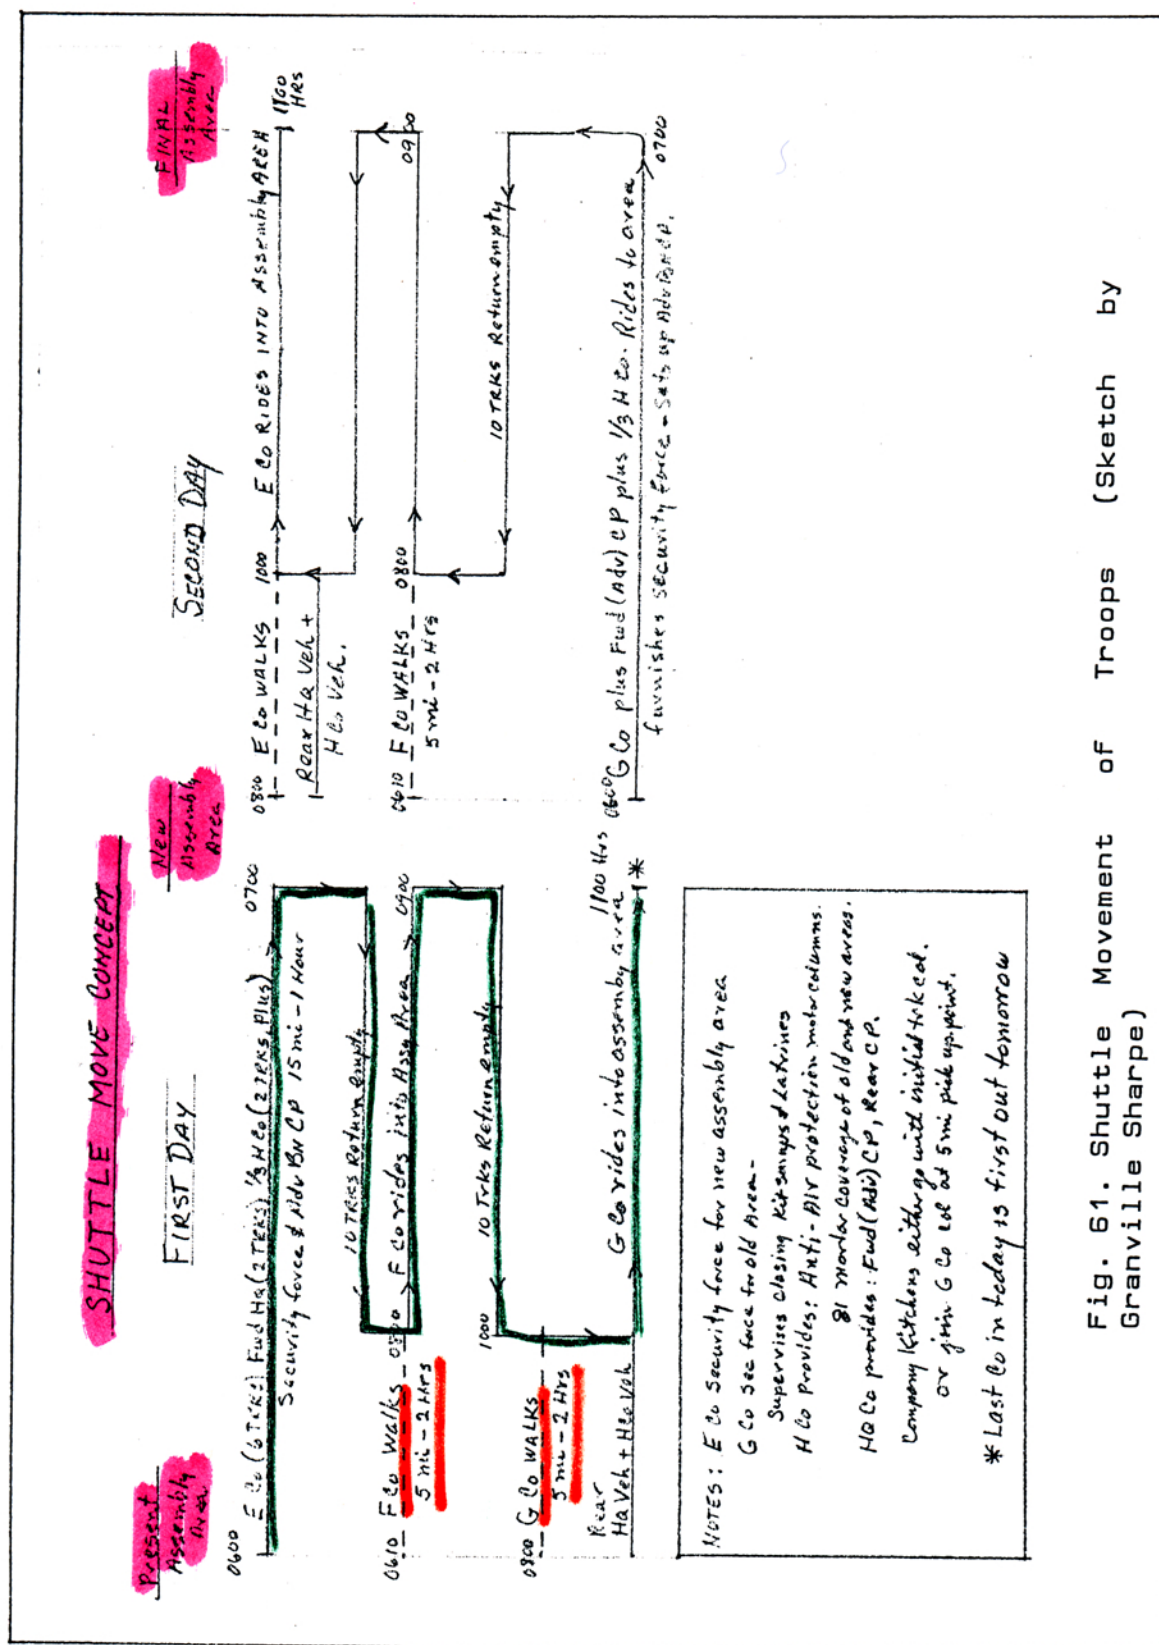 SHUTTLE MOVE CONCEPT
FIRST DAY
SECOND DAY
Present
Assembly
Area
New
Assembly
Area
FINAL
Assembly
Area
0600
E Co (6 TRKS) Fwd Hq (2 TRKS) 1/3 H Co (2 TRKS, Plus)
0700
Security force & Adv BN CP 15 mi - 1 Hour
10 TRKS Return empty
0610 F Co Walks
0800
F Co rides into Assy Area
0900
5 mi - 2 Hrs
10 Trks Return empty
1000
0800 G Co WALKS
5 mi - 2 Hrs
Rear
Hq Veh + H Co Veh
G Co rides into assembly area
1100 Hrs
*
0800 E Co WALKS 1000 E Co RIDES INTO ASSEMBLY AREA
1100
HRS
Rear Hq Veh +
H Co Veh.
0610 F Co WALKS 0800
0900
5 mi - 2 Hrs
10 TRKS Return empty
0600 G Co plus Fwd (Adv) CP plus 1/3 H Co. Rides to area
0700
furnishes security force - Sets up Adv Bn CP.
NOTES: E Co Security force for new assembly area
G Co Sec force for old Area -
Supervises closing Kit sumps & Latrines
H Co Provides: Anti-Air protection motor columns.
81 mortar coverage of old and new areas.
HQ Co provides: Fwd (Adv) CP, Rear CP.
Company Kitchens either go with initial trk col.
or join G Co col at 5 mi pick up point.
* Last Co in today is first out tomorrow
Fig. 61. Shuttle Movement of Troops (Sketch by
Granville Sharpe)